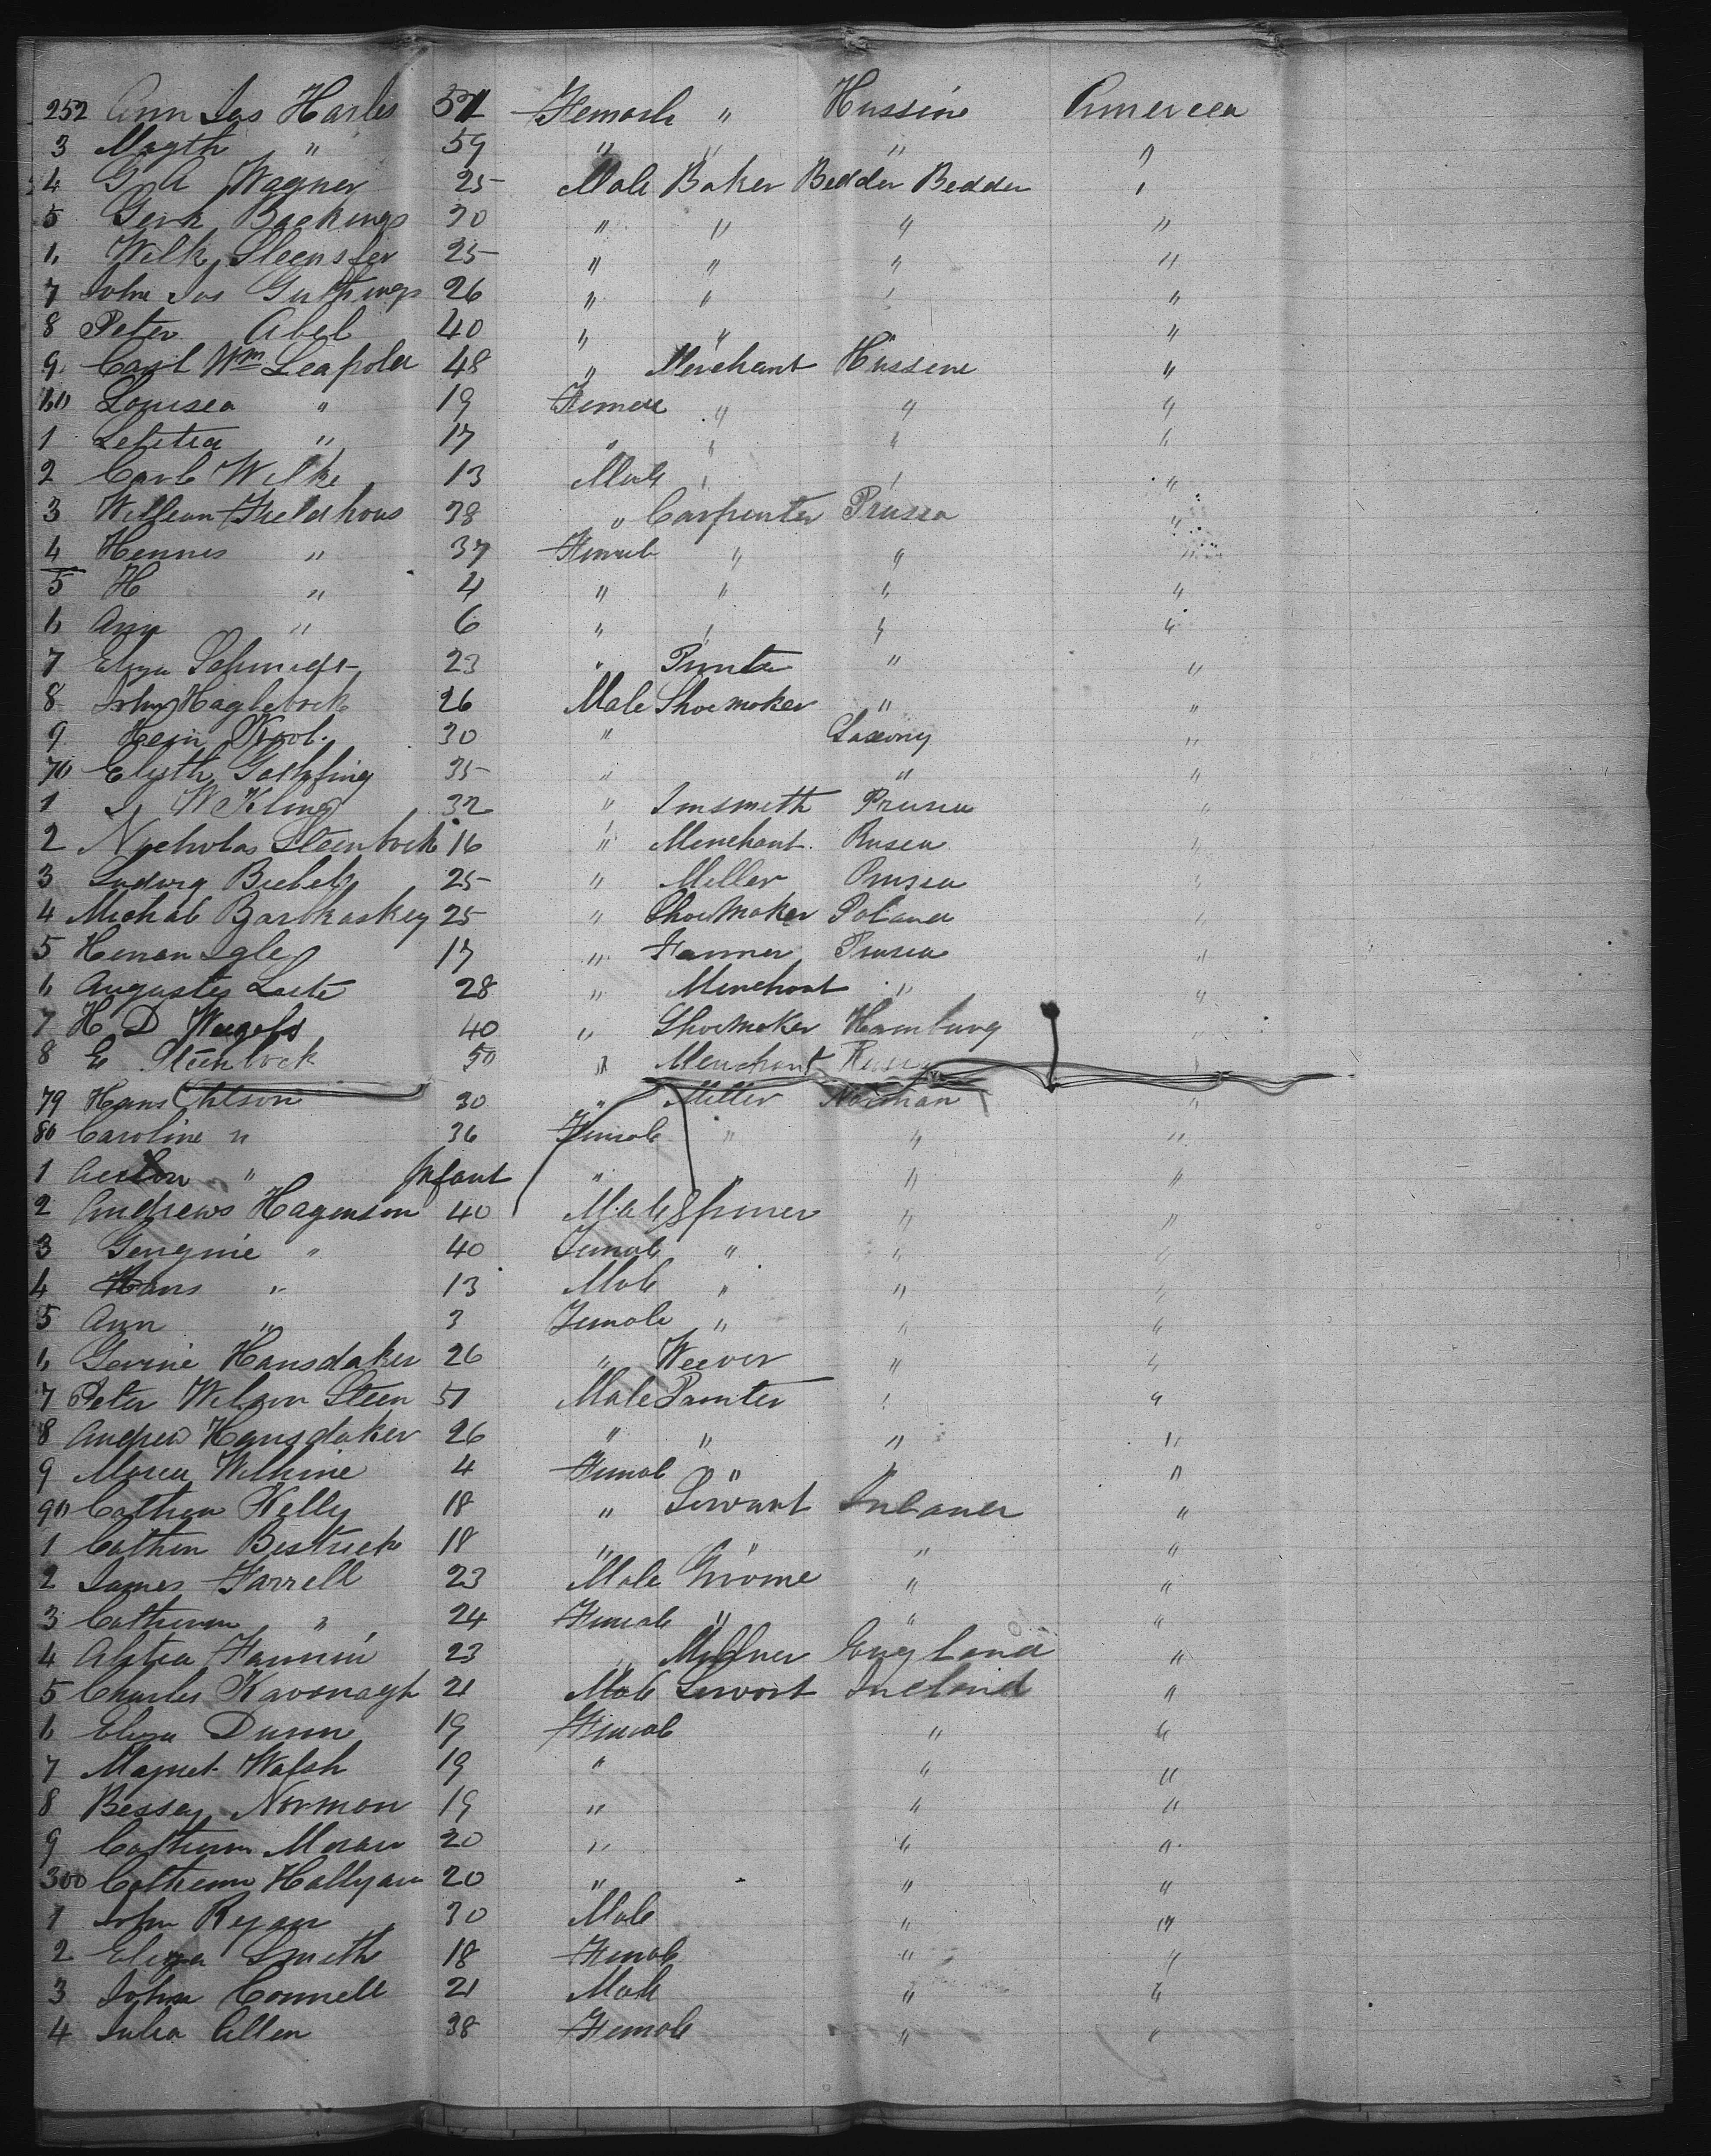 252 Ann Jos Harles 51 Female " Hussine America
3 Magth " 59 " " " "
4 G A Wagner 25 Male Baker Bedder Bedder "
5 Gerh Backings 30 " " " "
6 Wilk 25 " " " "
7 John Jos 26 " " " "
8 Peter Abel 40 " " "
9 Carl Wm Leapold 48 " Merchant Hussene "
60 Louisea " 19 Female " " "
1 Letitea " 17 " " " "
2 Carl Wilke 13 Male " " "
3 William 38 " Carpenter Prussa "
4 Hennes " 37 Female " " "
5 H " 4 " " " "
6 Ann " 6 " " " "
7 Eliza Schmidt 23 " " "
8 John Haglebock 26 Male Shoemaker " "
9 Hein 30 " Saxony "
70 Elizth 35 " " "
1 W Kling 32 " Prusea "
2 Nicholas Steenbock 16 " Merchant. Rusea "
3 Ludwig Biebel 25 " Miller Prusea "
4 Michal Bartkaskey 25 " Shoemaker Poland "
5 Heman Igle 17 " Farmer Prusea "
6 Augustes 28 " Merchant " "
7 H D 40 " Shoemaker Hamburg "
8 E Steenbock 50 " Merchant "
79 Hans Ohlson 30 " Miller Norman "
80 Caroline " 36 Female " " "
1 " Infant " " " "
2 Andrews Hagenson 40 Male Spiner " "
3 " 40 Female " " "
4 Hans " 13 Male " " "
5 Ann " 3 Female " " "
6 Hansdaker 26 " Weever " "
7 Peter Wilson Steen 51 Male Painter " "
8 Andrew Hansdaker 26 " " " "
9 Marea Wilhine 4 Female " " "
90 Cathren Kelly 18 " Servant "
1 Cathren 18 " " " "
2 James Farrell 23 Male Groome " "
3 Catherin " 24 Female " " "
4 Fannin 23 " England "
5 Charles Kavonagh 21 Male Servant Ireland "
6 Eliza Dunn 19 Female " "
7 Magret Walsh 19 " " "
8 Bessey Norman 19 " " "
9 Catherin Moran 20 " " "
300 Catherin Hallyan 20 " " "
1 John Ryan 30 Male " "
2 Eliza Smith 18 Female " "
3 John Connell 21 Male " "
4 Julia Allen 38 Female " "